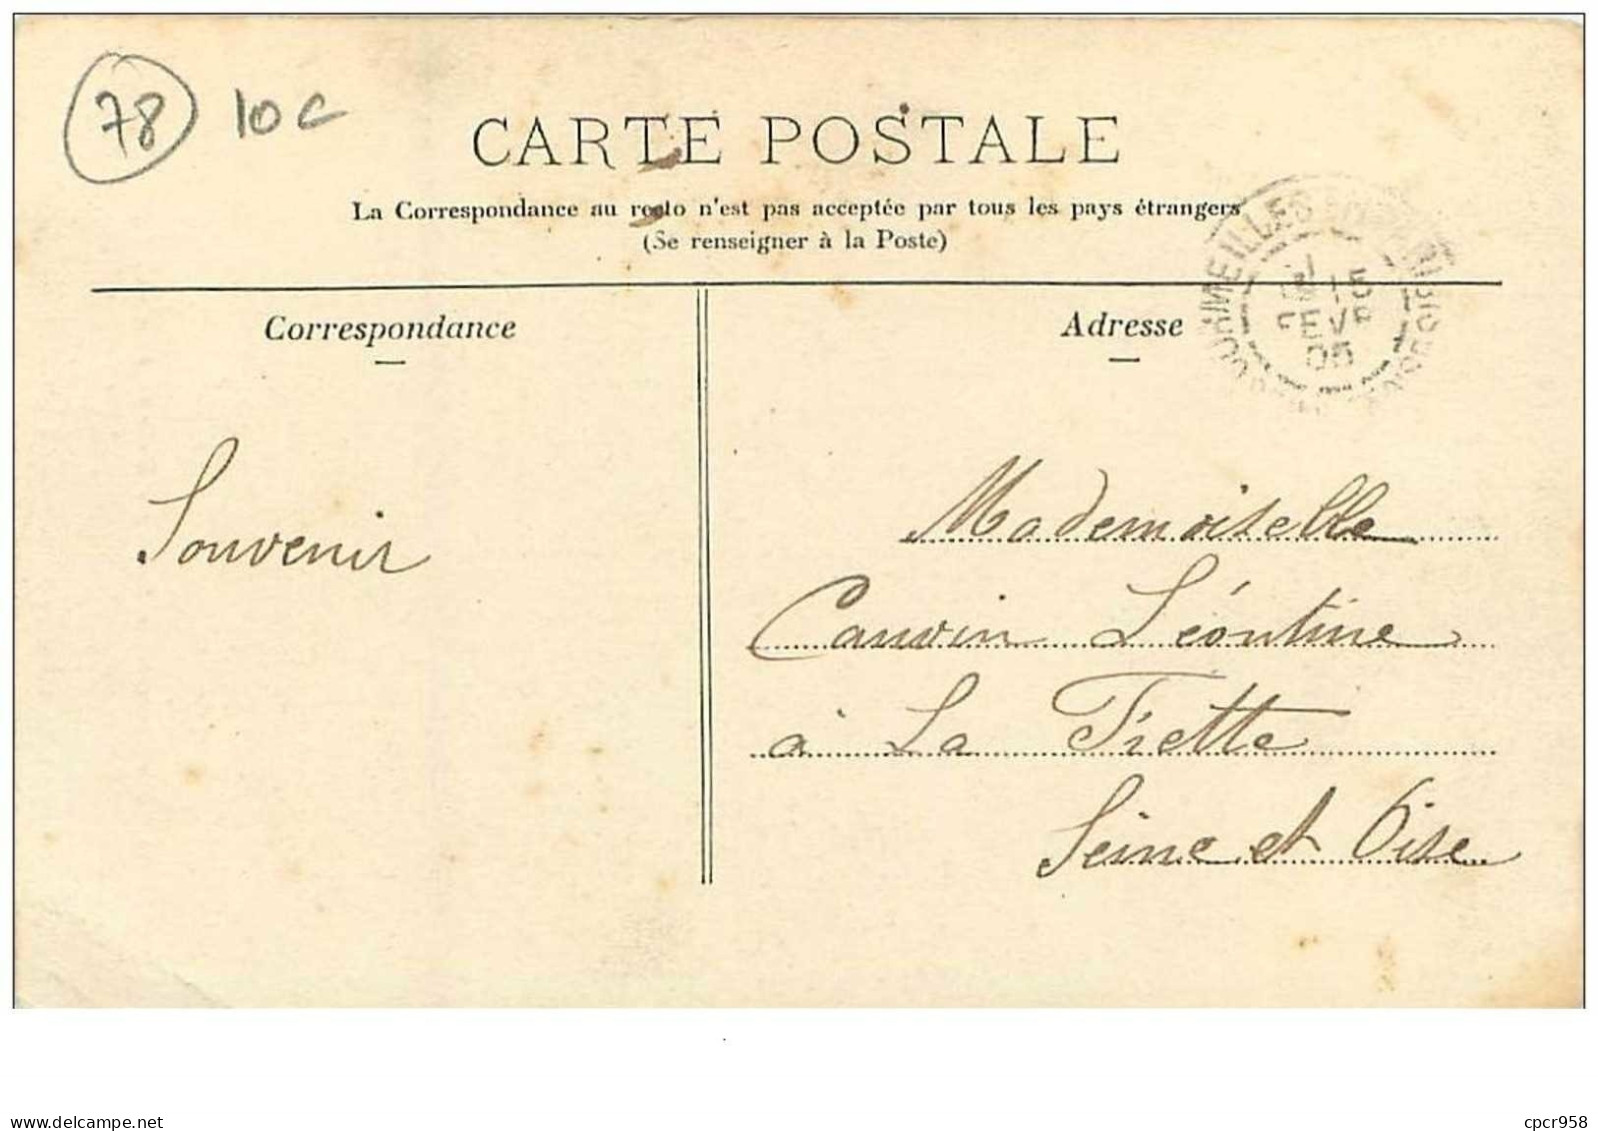 78 10 c
CARTE POSTALE
La Correspondance au recto n'est pas acceptée par tous les pays étrangers
(Se renseigner à la Poste)
Correspondance
Adresse
FEVR
05
Souvenir
Mademoiselle
Cauvin Léontine
à La Tiette
Seine et Oise
delcampe.net
cpcr958